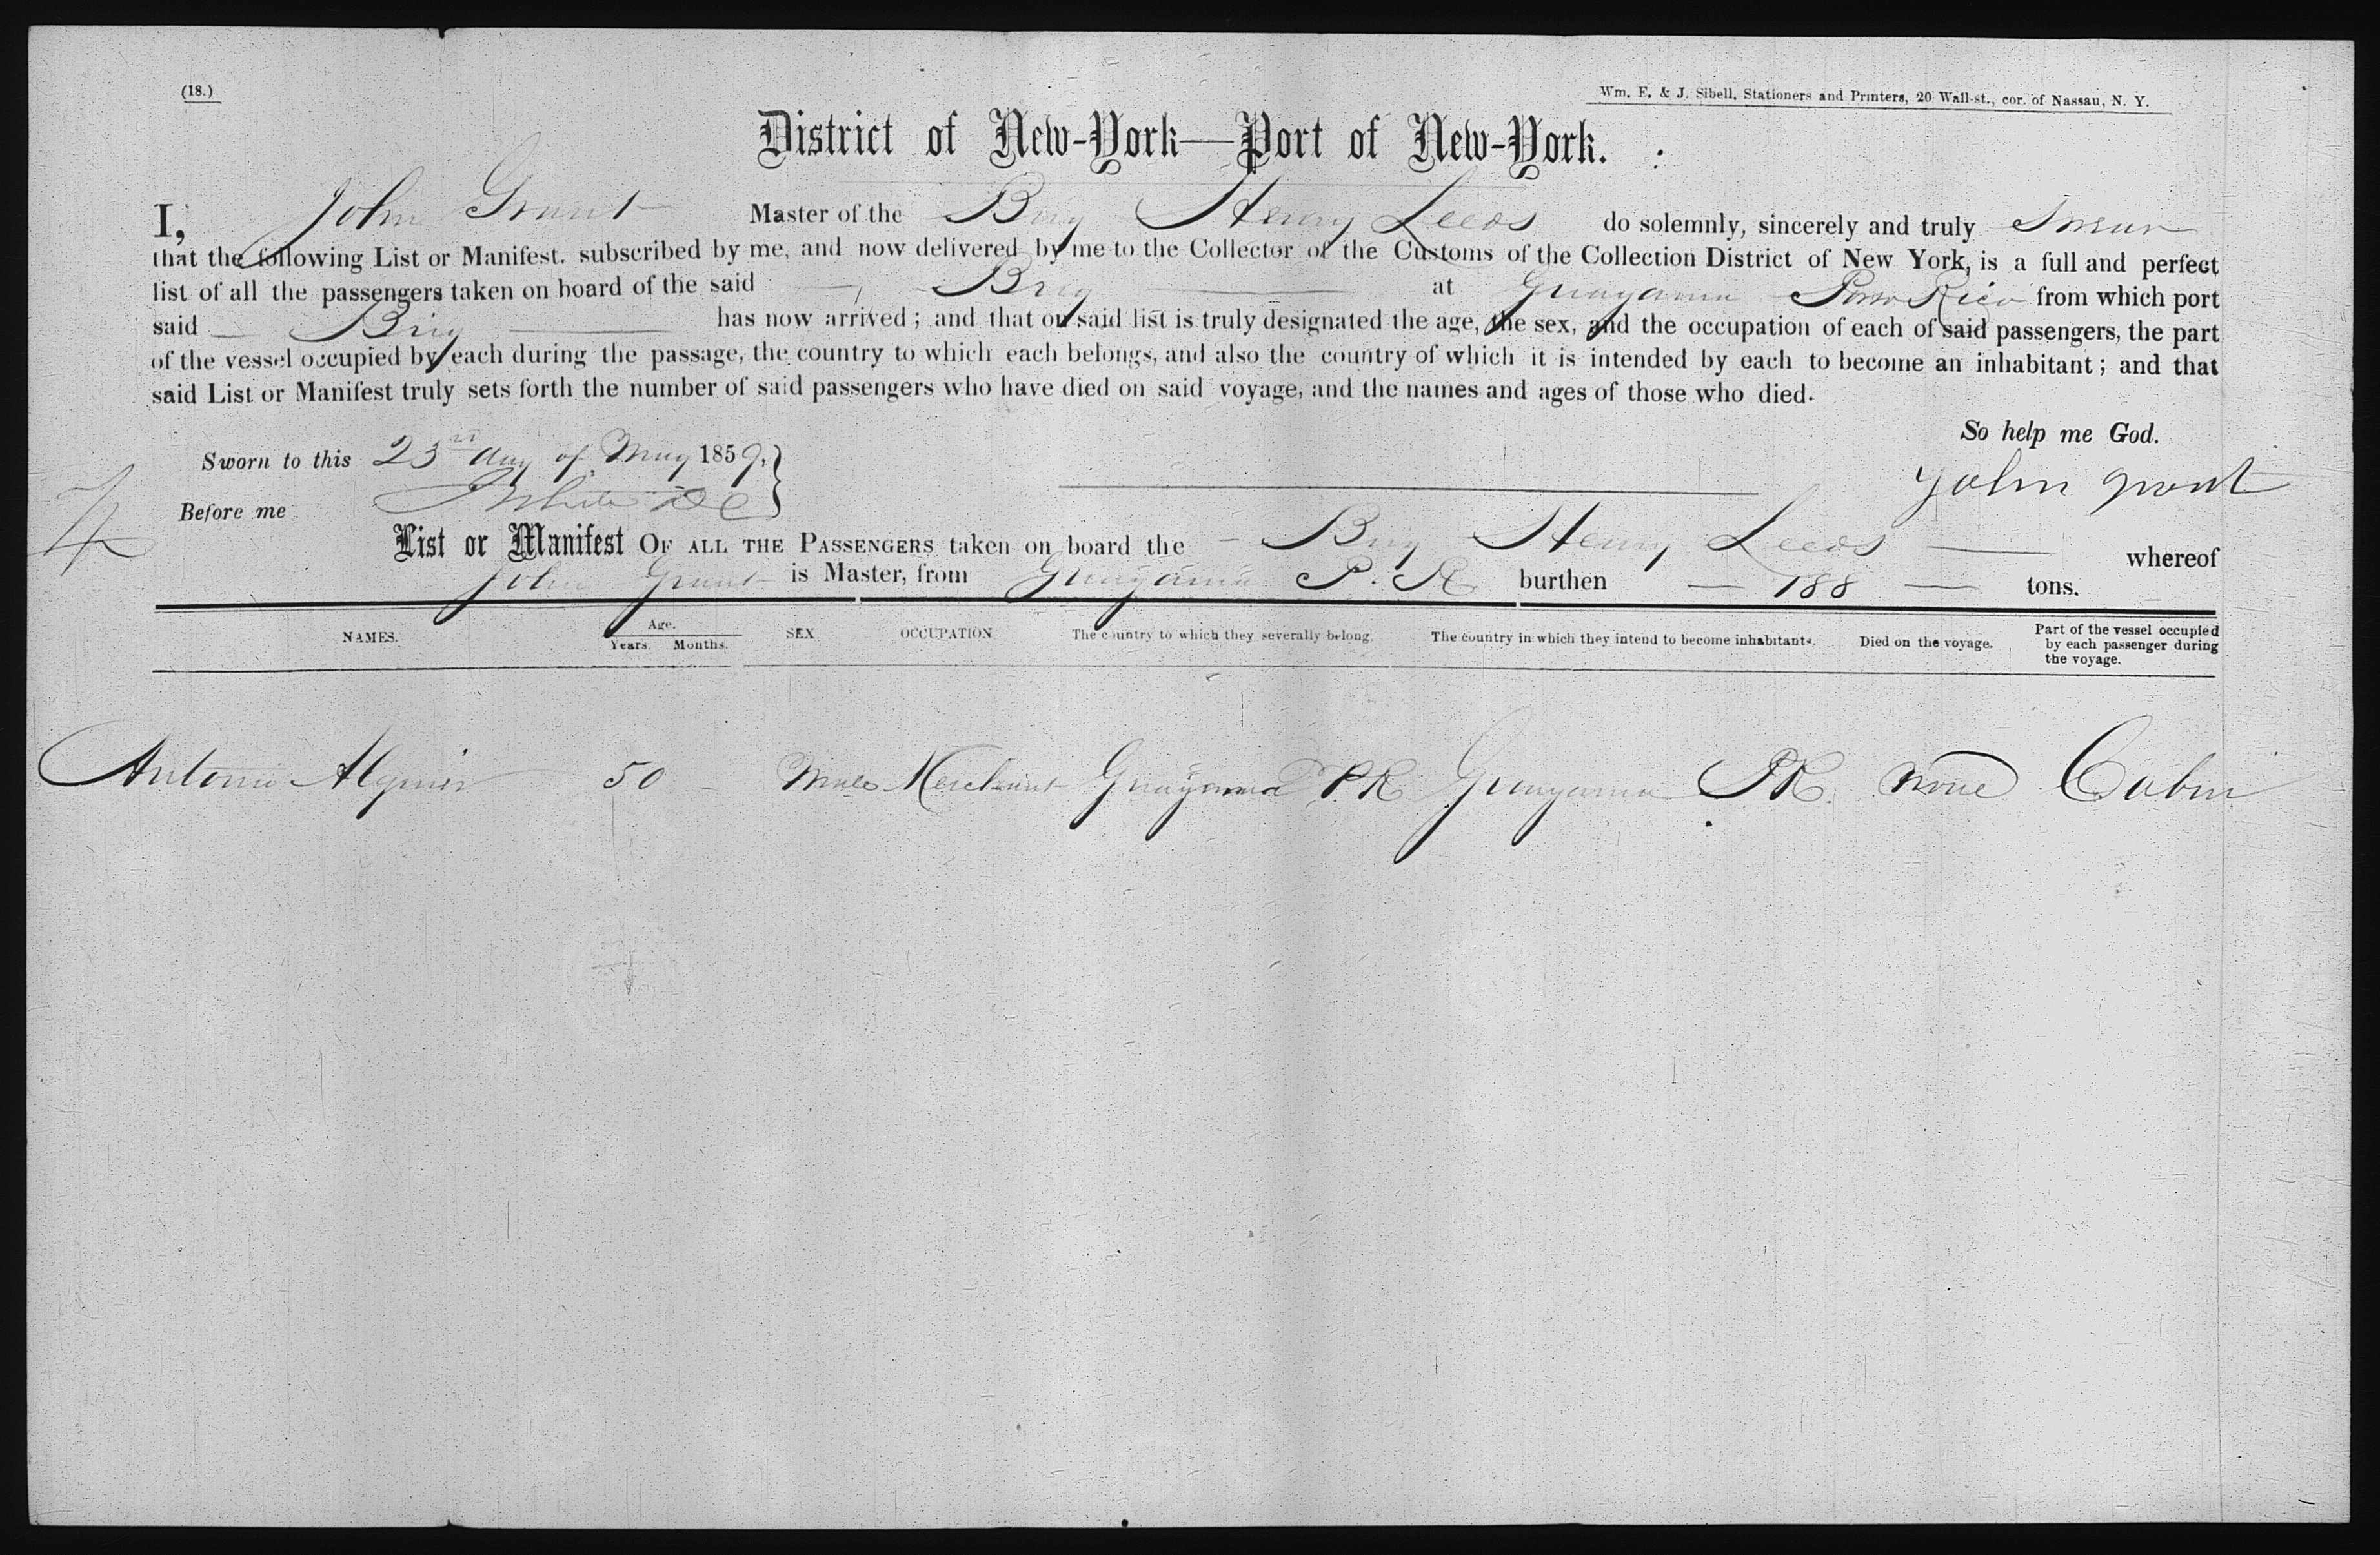 (18.)
Wm. E. & J. Sibell, Stationers and Printers, 20 Wall-st., cor. of Nassau, N. Y.
District of New-York—Port of New-York.
I, John Grant Master of the Brig Henry Leeds do solemnly, sincerely and truly Swear
that the following List or Manifest, subscribed by me, and now delivered by me to the Collector of the Customs of the Collection District of New York, is a full and perfect
list of all the passengers taken on board of the said Brig at Guayama Porto Rico from which port
said Brig has now arrived; and that on said list is truly designated the age, the sex, and the occupation of each of said passengers, the part
of the vessel occupied by each during the passage, the country to which each belongs, and also the country of which it is intended by each to become an inhabitant; and that
said List or Manifest truly sets forth the number of said passengers who have died on said voyage, and the names and ages of those who died.
So help me God.
Sworn to this 23rd day of May 1859.
John Grant
Before me White
4
List or Manifest OF ALL THE PASSENGERS taken on board the Brig Henry Leeds whereof
John Grant is Master, from Guayama P. R. burthen 188 tons.
NAMES. Age. Years. Months. SEX OCCUPATION The country to which they severally belong. The country in which they intend to become inhabitants. Died on the voyage. Part of the vessel occupied by each passenger during the voyage.
Antonio 50 Male Merchant Guayama P.R. Guayama P.R. None Cabin